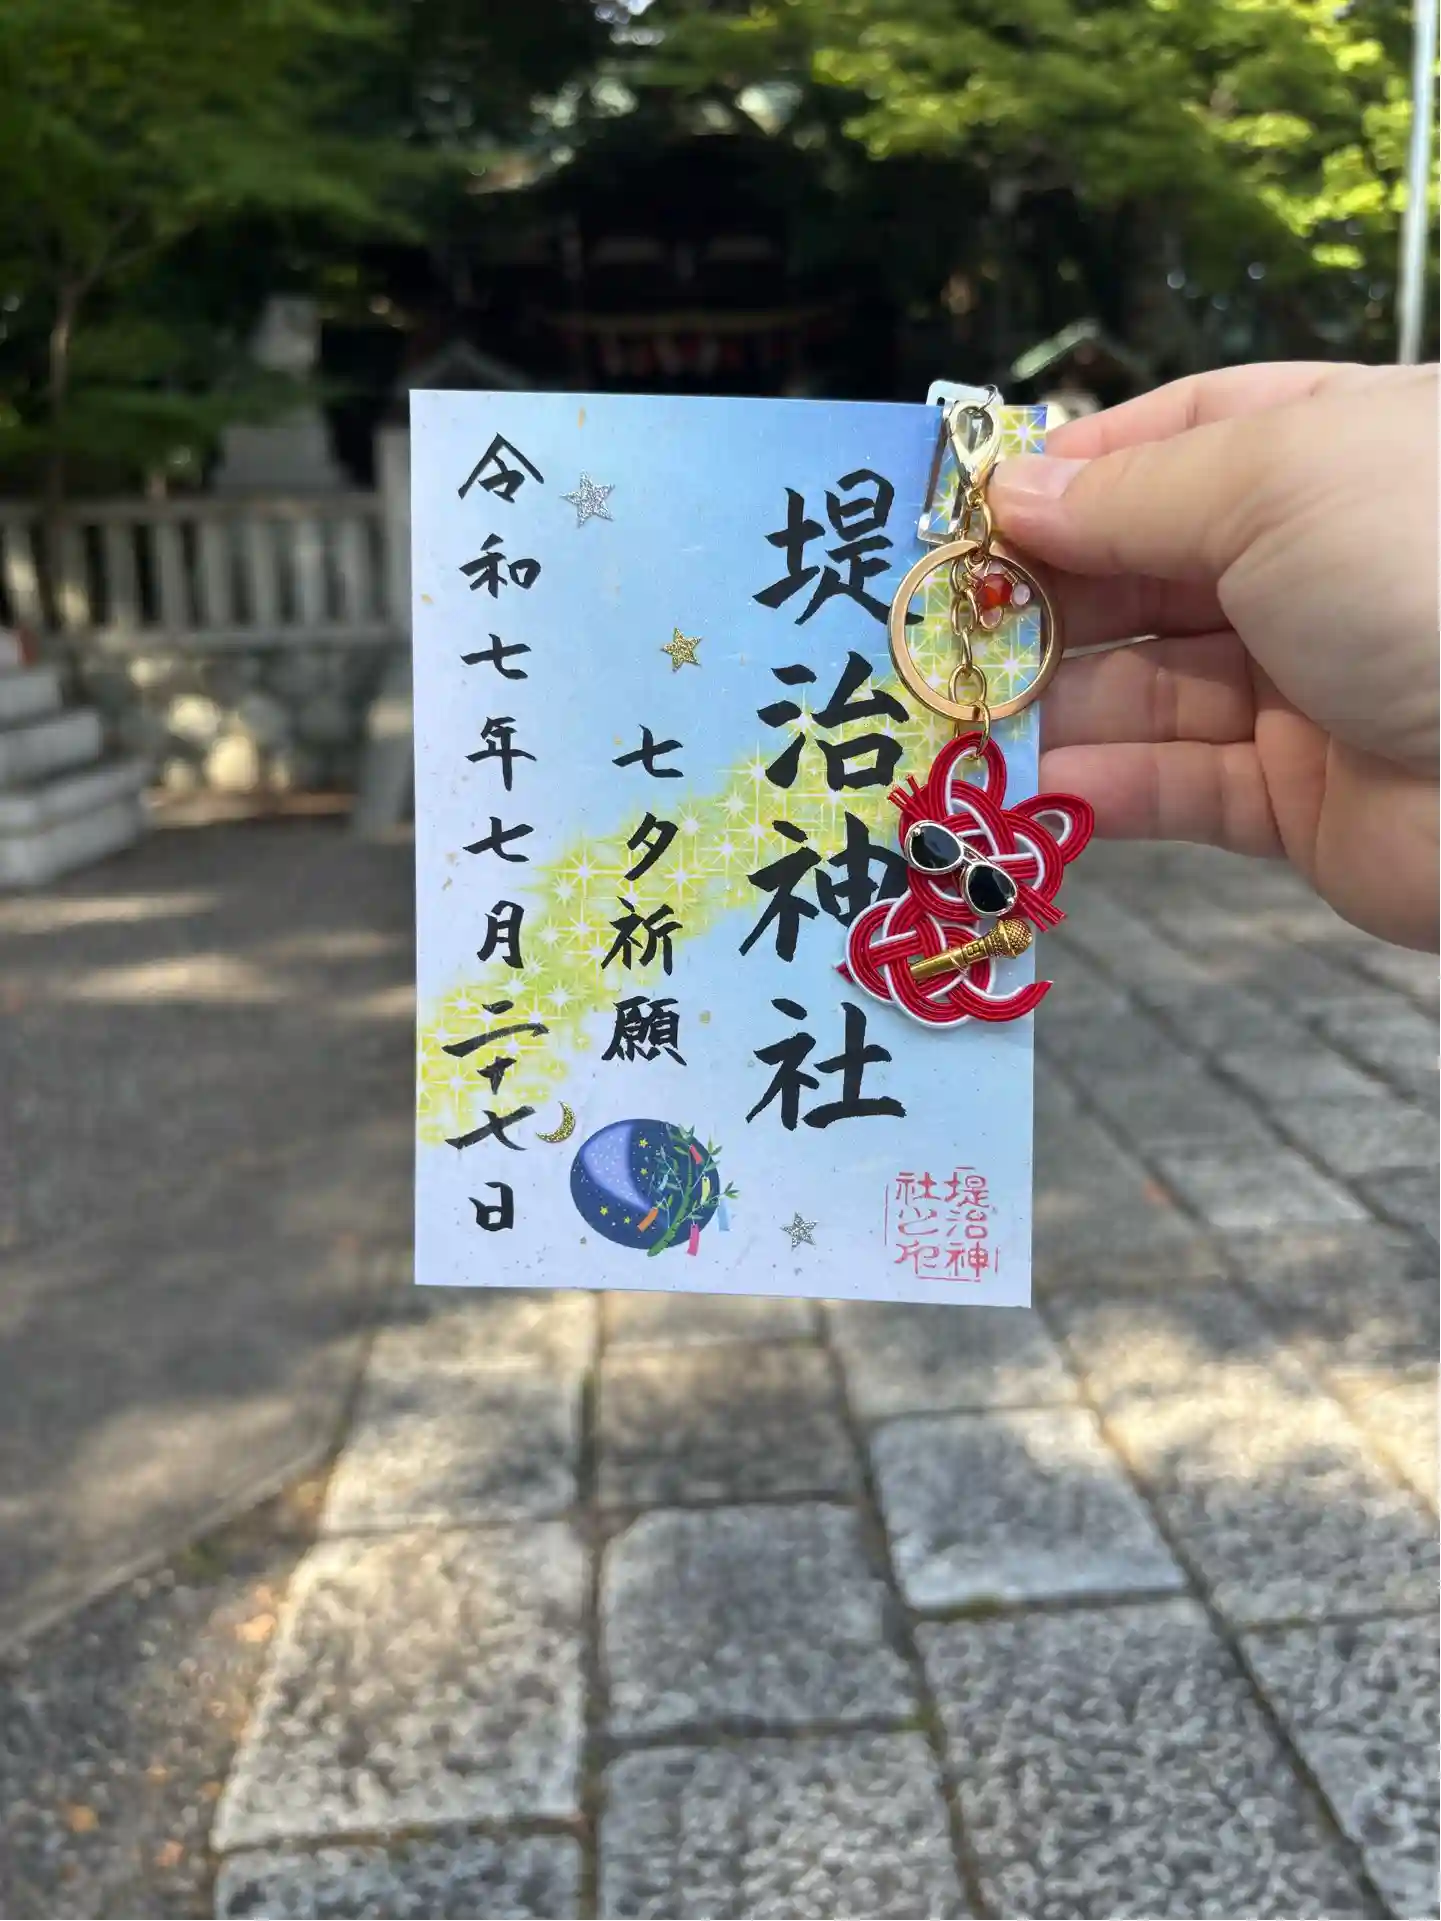 堤治神社
七夕祈願
令和七年七月二十七日
堤治神
社之印